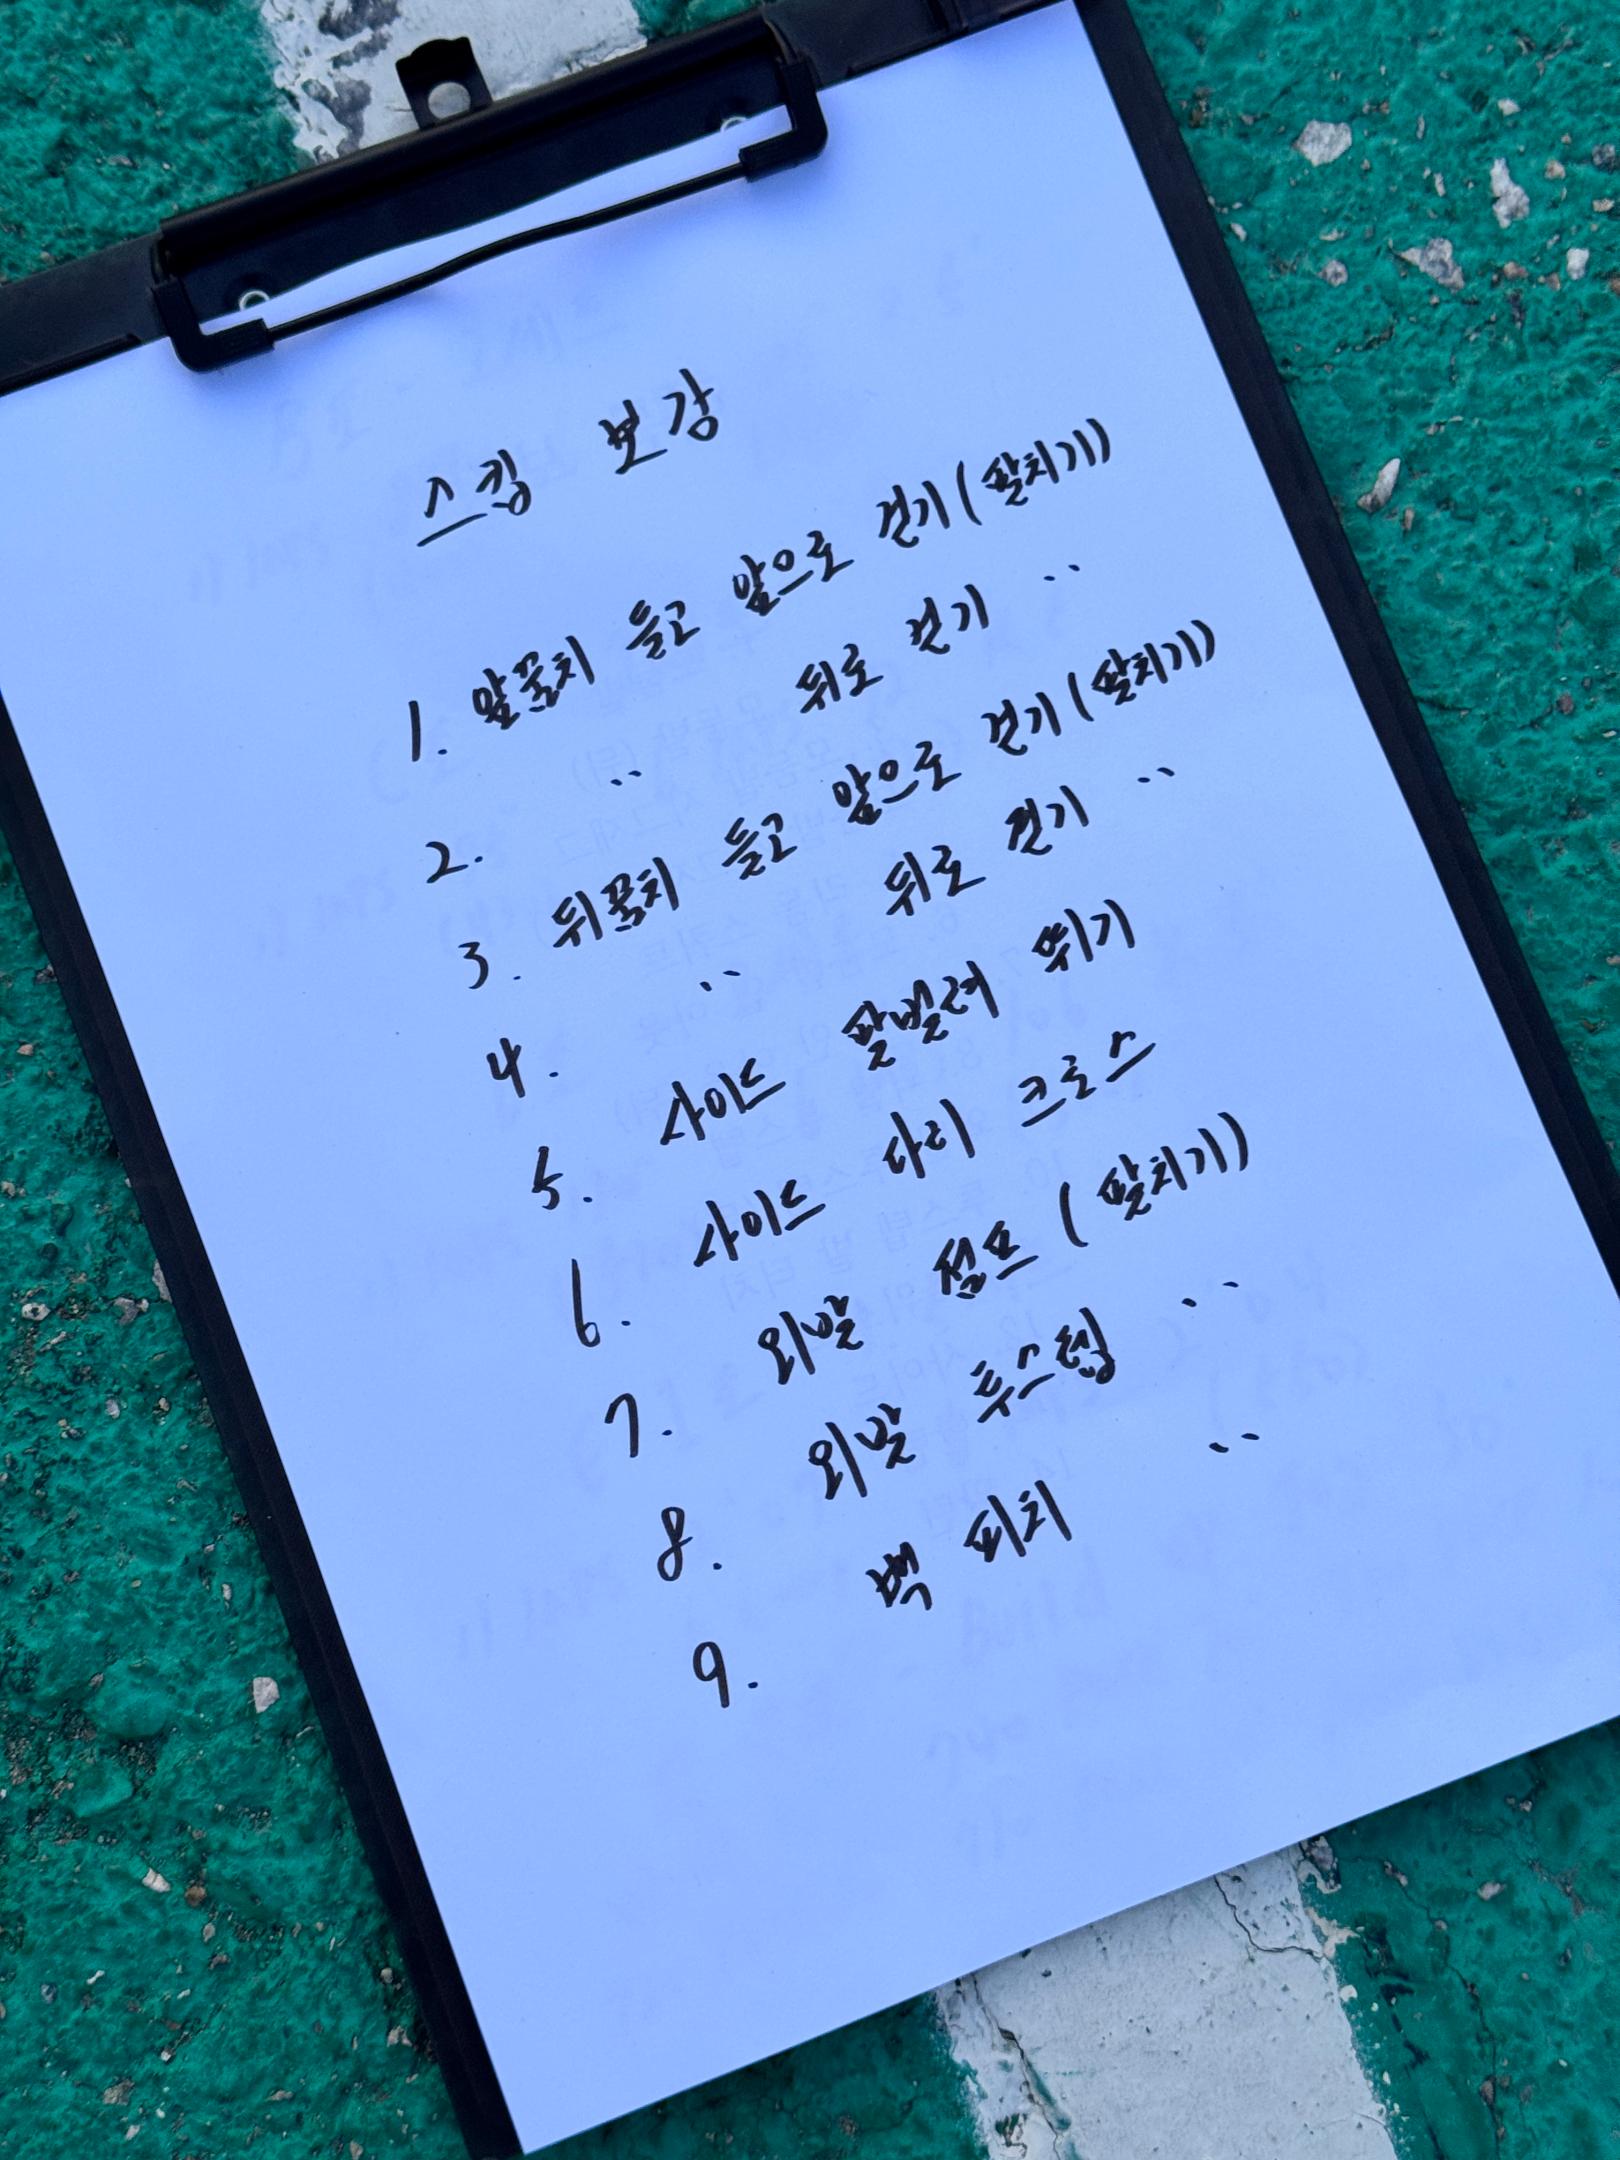 스킹 보강
1. 앞꿈치 들고 앞으로 걷기 (팔치기)
2. 〃 뒤로 걷기 〃
3. 뒤꿈치 들고 앞으로 걷기 (팔치기)
4. 〃 뒤로 걷기 〃
5. 사이드 팔벌려 뛰기
6. 사이드 다리 크로스
7. 외발 점프 (팔치기)
8. 외발 투스텝 〃
9. 백 피치 〃